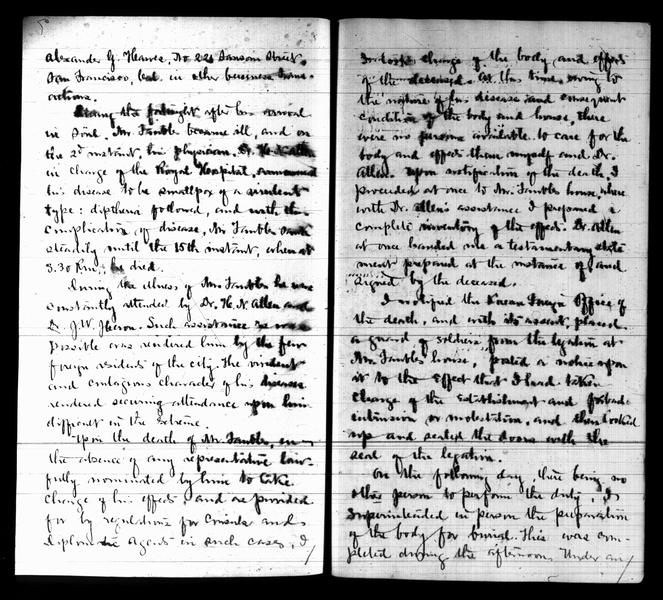 Alexander G. Hawes, No 220 Sansom Street,
San Francisco, but in other business trans-
actions.
During the fortnight after his arrival
in Söul, Mr. Tauble became ill, and on
the 2d instant, his physician, Dr. H. N. Allen
in charge of the Royal Hospital, announced
his disease to be smallpox of a virulent
type: diptheria followed, and with the
complication of disease, Mr Tauble sank
steadily until the 15th instant, when at
3.30 P.m., he died.
During the illness of Mr. Tauble he was
constantly attended by Dr. H. N. Allen and
Dr. J. W. Heron. Such assistance as was
possible was rendered him by the few
foreign residents of the city. The virulent
and contagious character of his disease
rendered securing attendance upon him
difficult in the extreme.
Upon the death of Mr. Tauble, in
the absence of any representative law-
fully nominated by him to take
charge of his effects, and as provided
for by regulations for Consular and
diplomatic agents in such cases, I
took charge of the body and effects
of the deceased. At this time owing to
the nature of his disease and consequent
condition of the body and house, there
were no persons available to care for the
body and effects than myself and Dr.
Allen. Upon notification of the death, I
proceeded at once to Mr. Tauble's house, where
with Dr. Allen's assistance I prepared a
complete inventory of the effects. Dr. Allen
at once handed me a testamentary state
ment prepared at the instance of, and
signed by the deceased.
I notified the Korean Foreign Office of
the death, and with its assent, placed
a guard of soldiers from the legation at
Mr. Tauble's house, posted a notice upon
it to the effect that I had taken
charge of the establishment and forbade
intrusion or molestation, and then locked
up and sealed the doors with the
seal of the legation.
On the following day, there being no
other person to perform the duty, I
superintended in person the preparation
of the body for burial. This was com-
pleted during the afternoon. Under any